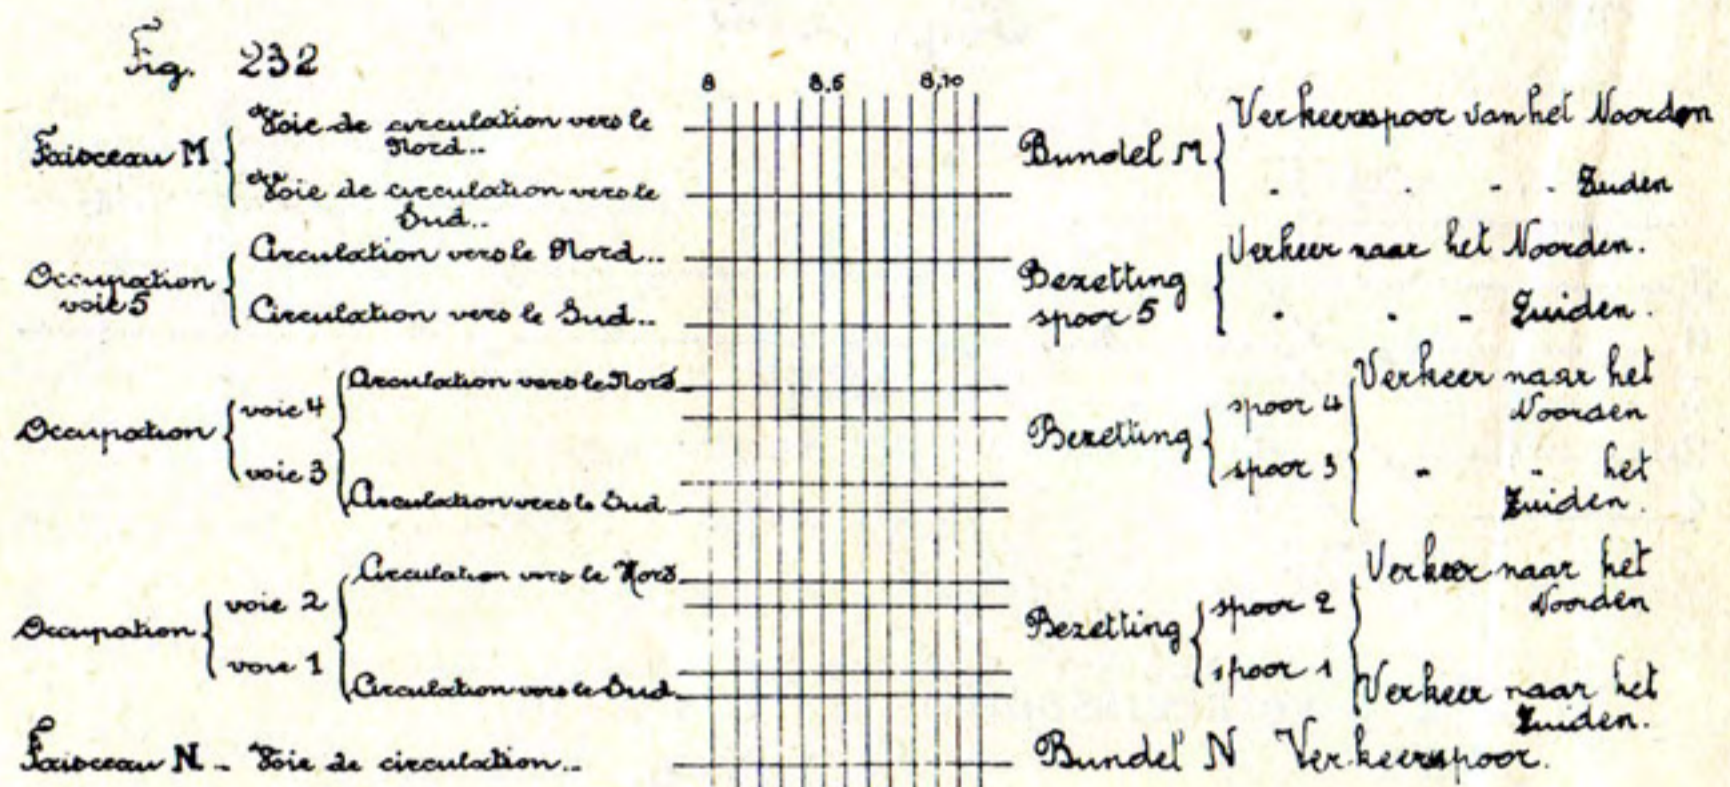 Fig. 232
8 8,5 8,10
Faisceau M
Voie de circulation vers le
Nord..
Voie de circulation vers le
Sud..
Occupation
voie 5
Circulation vers le Nord...
Circulation vers le Sud..
Occupation
voie 4
voie 3
Circulation vers le Nord
Circulation vers le Sud
Occupation
voie 2
voie 1
Circulation vers le Nord
Circulation vers le Sud
Faisceau N - Voie de circulation..
Bundel M
Verkeerspoor van het Noorden
" " " " Zuiden
Bezetting
spoor 5
Verkeer naar het Noorden.
" " " Zuiden.
Bezetting
spoor 4
spoor 3
Verkeer naar het
Noorden
" " het
Zuiden.
Bezetting
spoor 2
spoor 1
Verkeer naar het
Noorden
Verkeer naar het
Zuiden.
Bundel N Verkeerspoor.